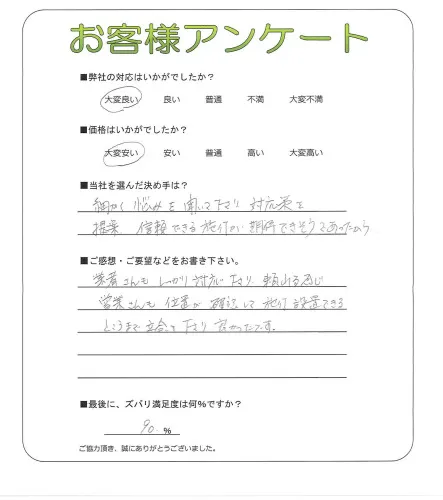 お客様アンケート
■弊社の対応はいかがでしたか？
大変良い 良い 普通 不満 大変不満
■価格はいかがでしたか？
大変安い 安い 普通 高い 大変高い
■当社を選んだ決め手は？
細かく悩みを聞いて下さり 対応策を
提案 信頼できる施行が期待できそうであったから
■ご感想・ご要望などをお書き下さい。
業者さんも しっかり対応下さり、頼れる感じ
営業さんも 位置が 確認して 施行 設置できる
ところまで 立会って下さり 良かったです。
■最後に、ズバリ満足度は何％ですか？
90 ％
ご協力頂き、誠にありがとうございました。